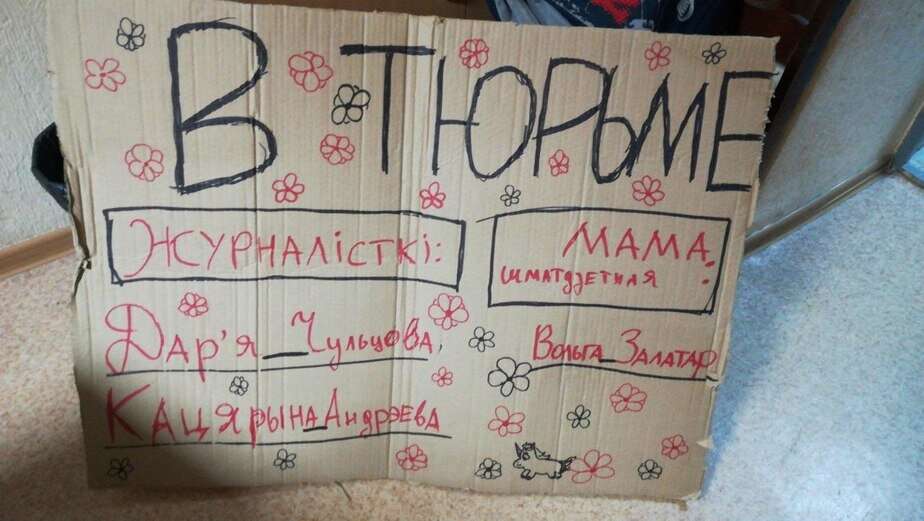 В ТЮРЬМЕ
ЖУРНАЛІСТКІ:
Дар'я Чульцова,
Кацярына Андрэева
МАМА
шматдзетная:
Вольга Залатар